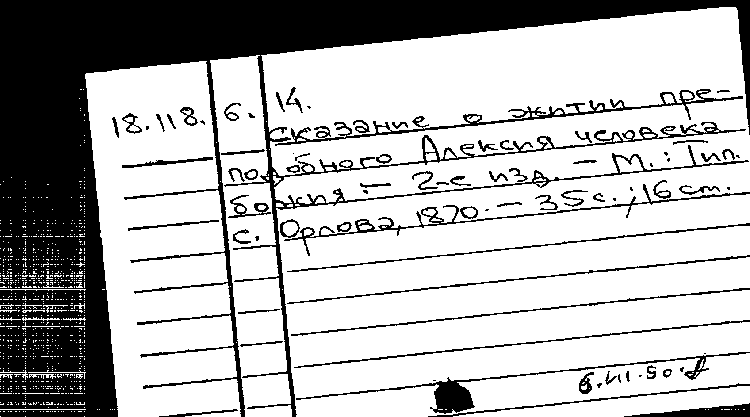 18.118.6.14.
Сказание о житии пре-
подобного Алексия человека
божия. – 2-е изд. – М.: Тип.
С. Орлова, 1870. – 35 с.; 16 см.
6.VII.50.